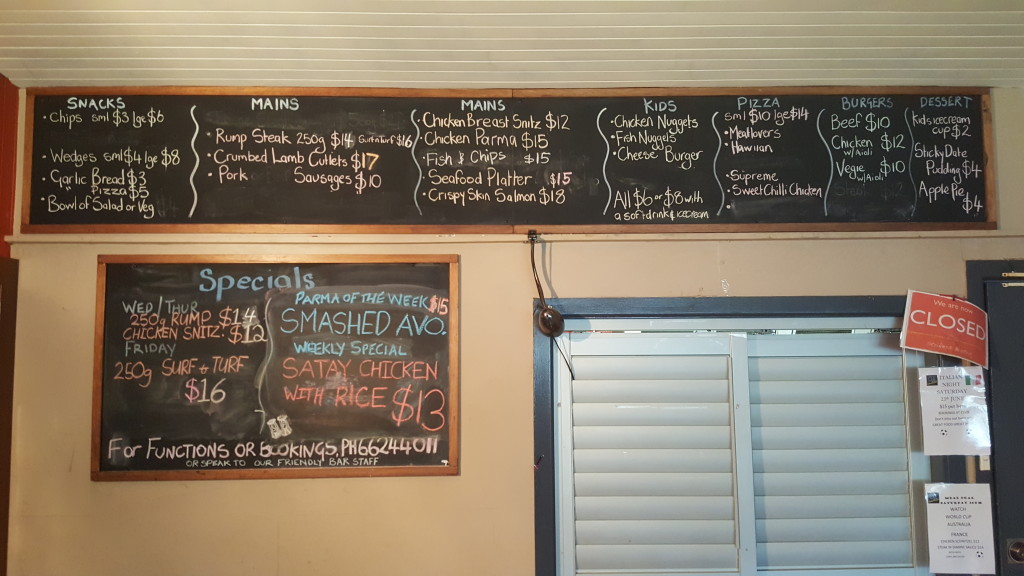 SNACKS
• Chips sml $3 lge $6
• Wedges sml $4 lge $8
• Garlic Bread $3
Pizza $5
• Bowl of Salad or Veg
MAINS
• Rump Steak 250g $14 Surf & Turf $16
• Crumbed Lamb Cutlets $17
• Pork Sausages $10
MAINS
• Chicken Breast Snitz $12
• Chicken Parma $15
• Fish & Chips $15
• Seafood Platter $15
• Crispy Skin Salmon $18
KIDS
• Chicken Nuggets
• Fish Nuggets
• Cheese Burger
All $6 or $8 with
a soft drink & icecream
PIZZA
sml $10 lge $14
• Meatlovers
• Hawiian
• Supreme
• Sweet Chilli Chicken
•
BURGERS
Beef $10
Chicken $12
w/ Aioli
Vegie $10
w/ Aioli
DESSERT
Kids icecream
cup $2
Sticky Date
Pudding $4
Apple Pie
$4
Specials
WED / THUR
250g RUMP $14
CHICKEN SNITZ: $12
FRIDAY
250g SURF & TURF
$16
PARMA OF THE WEEK $15
SMASHED AVO.
WEEKLY SPECIAL
SATAY CHICKEN
WITH RICE $13
FOR FUNCTIONS OR BOOKINGS, PH 66244011
OR SPEAK TO OUR FRIENDLY BAR STAFF
We are now
CLOSED
ITALIAN
NIGHT
SATURDAY
23rd JUNE
WATCH
WORLD CUP
AUSTRALIA
FRANCE